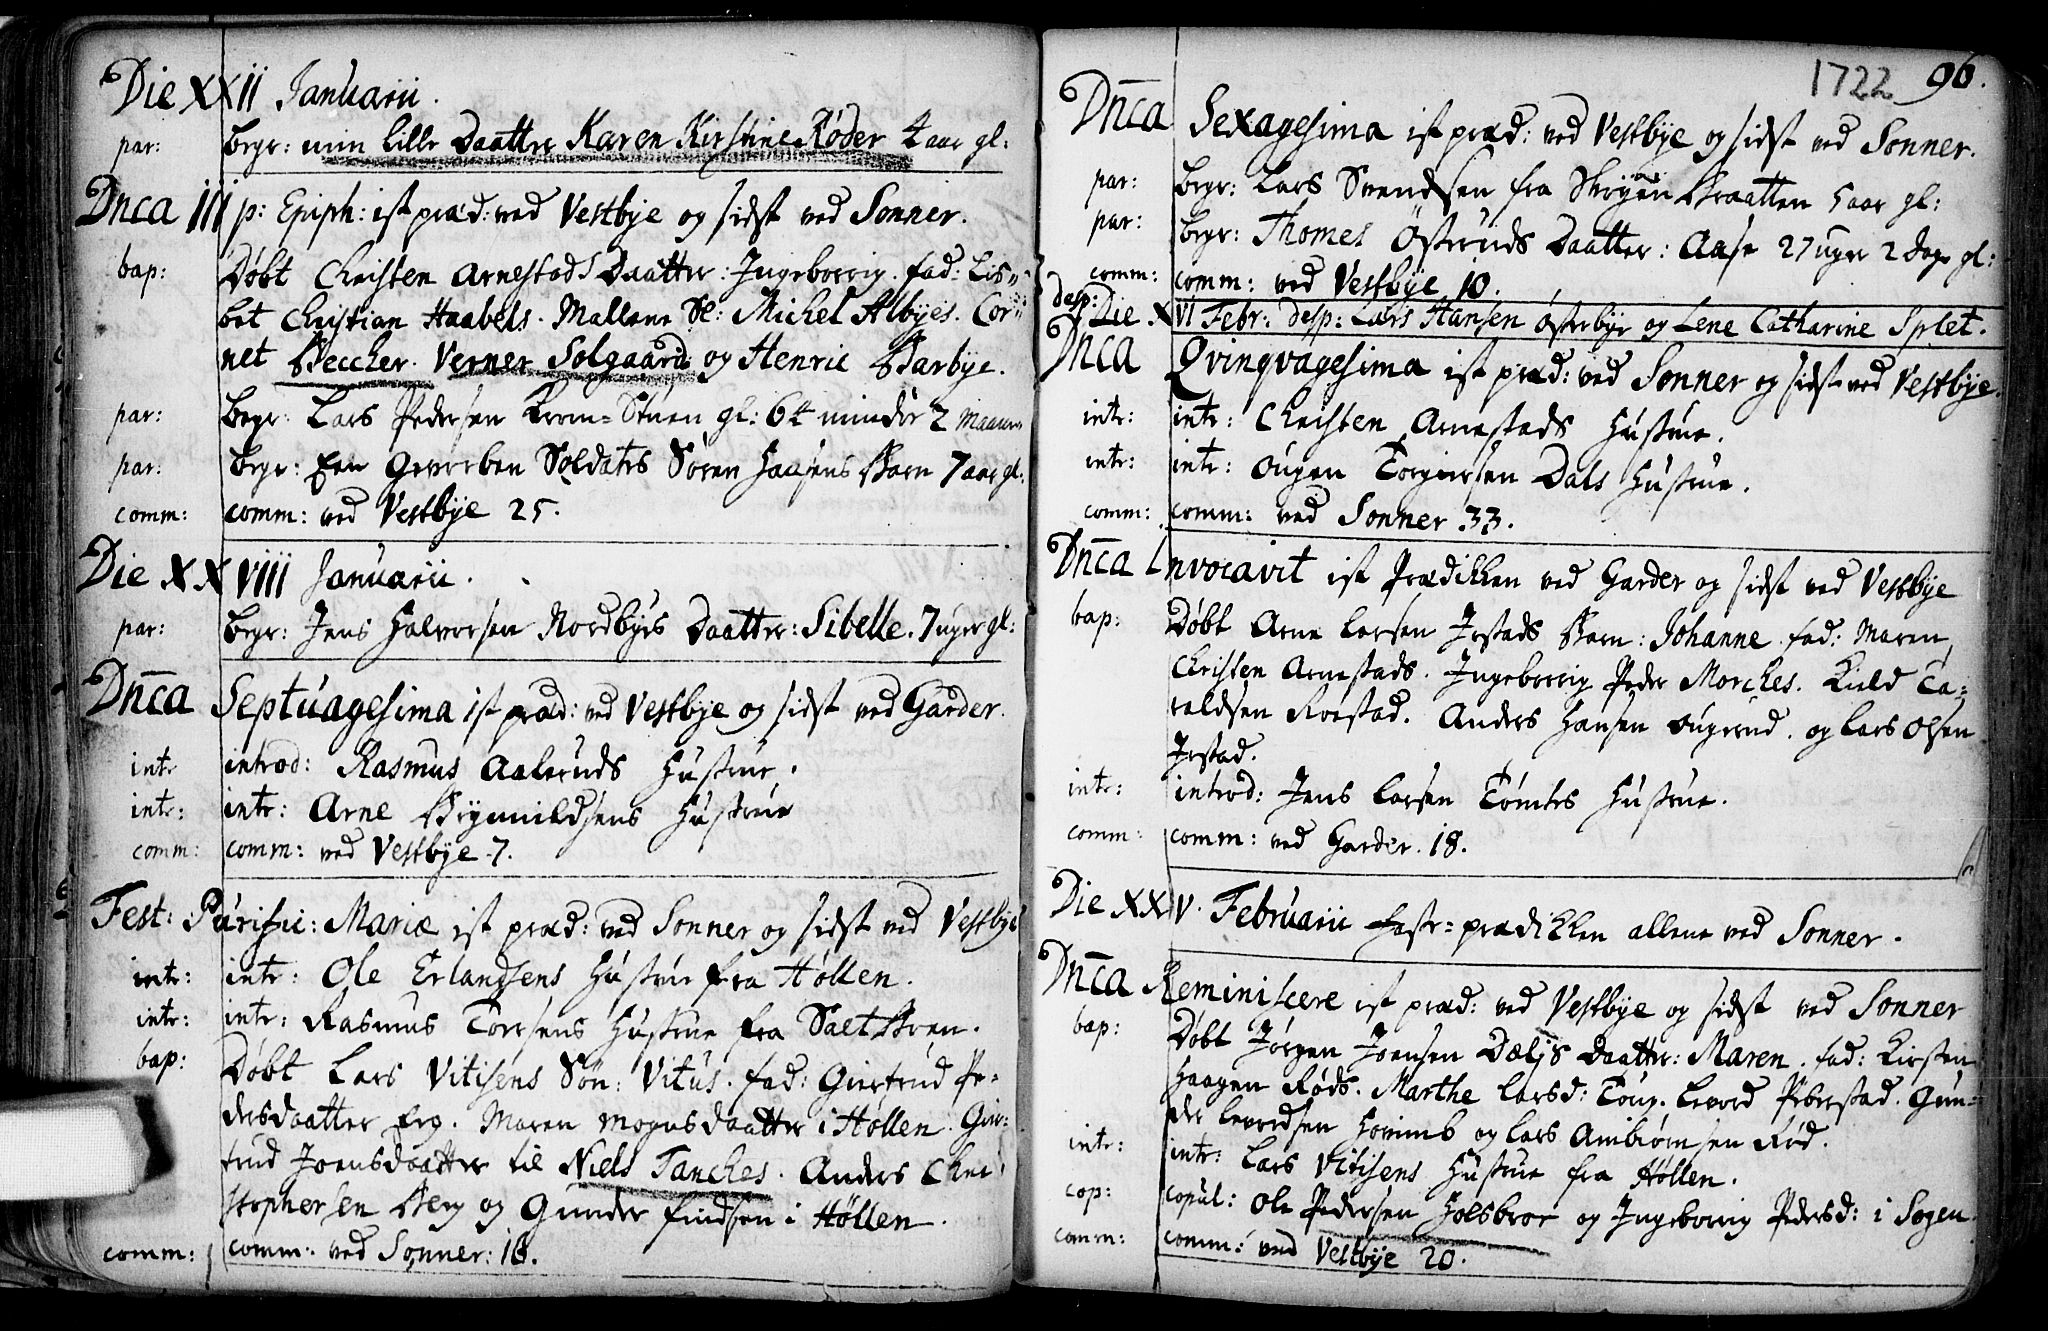 Die XXII Januarii.
par: begr: min lille Daatter Karen Kirstine Røder 4 aar gl:
Dn̄ca III p: Epiph: ist præd: ved Vestbye og sidst ved Sonner.
bap: Døbt Christen Arnestads Daatter: Ingeborrig. fad: Lis=
bet Christian Haabels. Mallene Sl: Michel Albyes. Cor=
net Beccher. Verner Solgaard og Henric Barbye.
par: begr: Lars Pedersen Krom=Stuen gl: 64 mindr 2 maaner
par: begr: Een Gevorben Soldats Søren Hansens Barn 7 aar gl:
comm: comm: ved Vestbye 25.
Die XXVIII Januarii.
par: begr: Jens Halvorsen Nordbyes Daatter: Sibelle. 7 uger gl:
Dn̄ca Septuagesima ist præd: ved Vestbye og sidst ved Garder.
intr introd: Rasmus Aaleruds Hustrue.
intr: intr: Arne Brynnildsens Hustrue
comm: comm: ved Vestbye 7.
Fest: Purific: Mariæ ist præd: ved Sonner og sidst ved Vestbye
intr: intr: Ole Erlandsens Hustrue fra Høllen.
intr: intr: Rasmus Toresens Hustrue fra Saltbren.
bap: Døbt Lars Vitisens Søn: Vitus. fad: Giertrud Pe=
dersdaatter Erg. Maren Mognsdaatter i Høllen. Gier=
trud Joensdaatter til Niels Tanches. Anders Chri
stophersen Berg og Gunder Findsen i Høllen.
comm: comm: ved Sonner: 18.
1722 96.
Dn̄ca Sexagesima ist præd: ved Vestbye og sidst ved Sonner.
par: begr: Lars Svendsen fra Skogen Braatten 5 aar gl:
par: begr: Thomes Østeruds Daatter: Aase 27 uger 2 dage gl:
comm: comm: ved Vestbye 10.
desp: Die XVI Febr: desp: Lars Hansen Østerbye og Lene Catharine Splet.
Dn̄ca Qvinqvagesima ist præd: ved Sonner og sidst ved Vestbye.
intr: intr: Christen Arnestads Hustrue.
intr: intr: Ougen Torgiersen Dals Hustrue.
comm: comm: ved Sonner 33.
Dn̄ca Invocavit ist Prædikken ved Garder og sidst ved Vestbye
bap: Døbt Arne Larsen Irstads Barn: Johanne. fad: Maren
Christen Arnestads. Ingeborrig Peder Morches. Kuld Ta=
raldsen Roestad. Anders Hansen Ougerud. og Lars Olsen
Irstad.
intr: introd: Jens Larsen Tømtes Hustrue.
comm: comm: ved Garder. 18.
Die XXV. Februarii Faste=prædikken allene ved Sonner.
Dn̄ca Reminiscere ist præd: ved Vestbye og sidst ved Sonner
bap: Døbt Jørgen Joensen Dæljs Daatter: Maren. fad: Kirsten
Haagen Røds. Marthe Larsd: Toug. Levord Peberstad. Gun=
der Levordsen Hovimb og Lars Ambiørnsen Rød.
intr: intr: Lars Vitisens Hustrue fra Høllen.
cop: copul: Ole Pedersen Holsbroe og Ingeborrig Pedersd: i Sogen.
comm: comm: ved Vestbye 20.